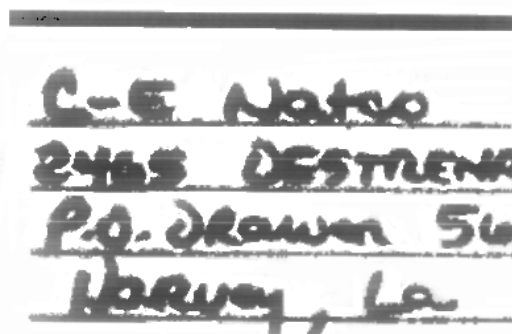 C-E Natco
2465 DESTREHA
P.O. Drawer 56
Harvey, La